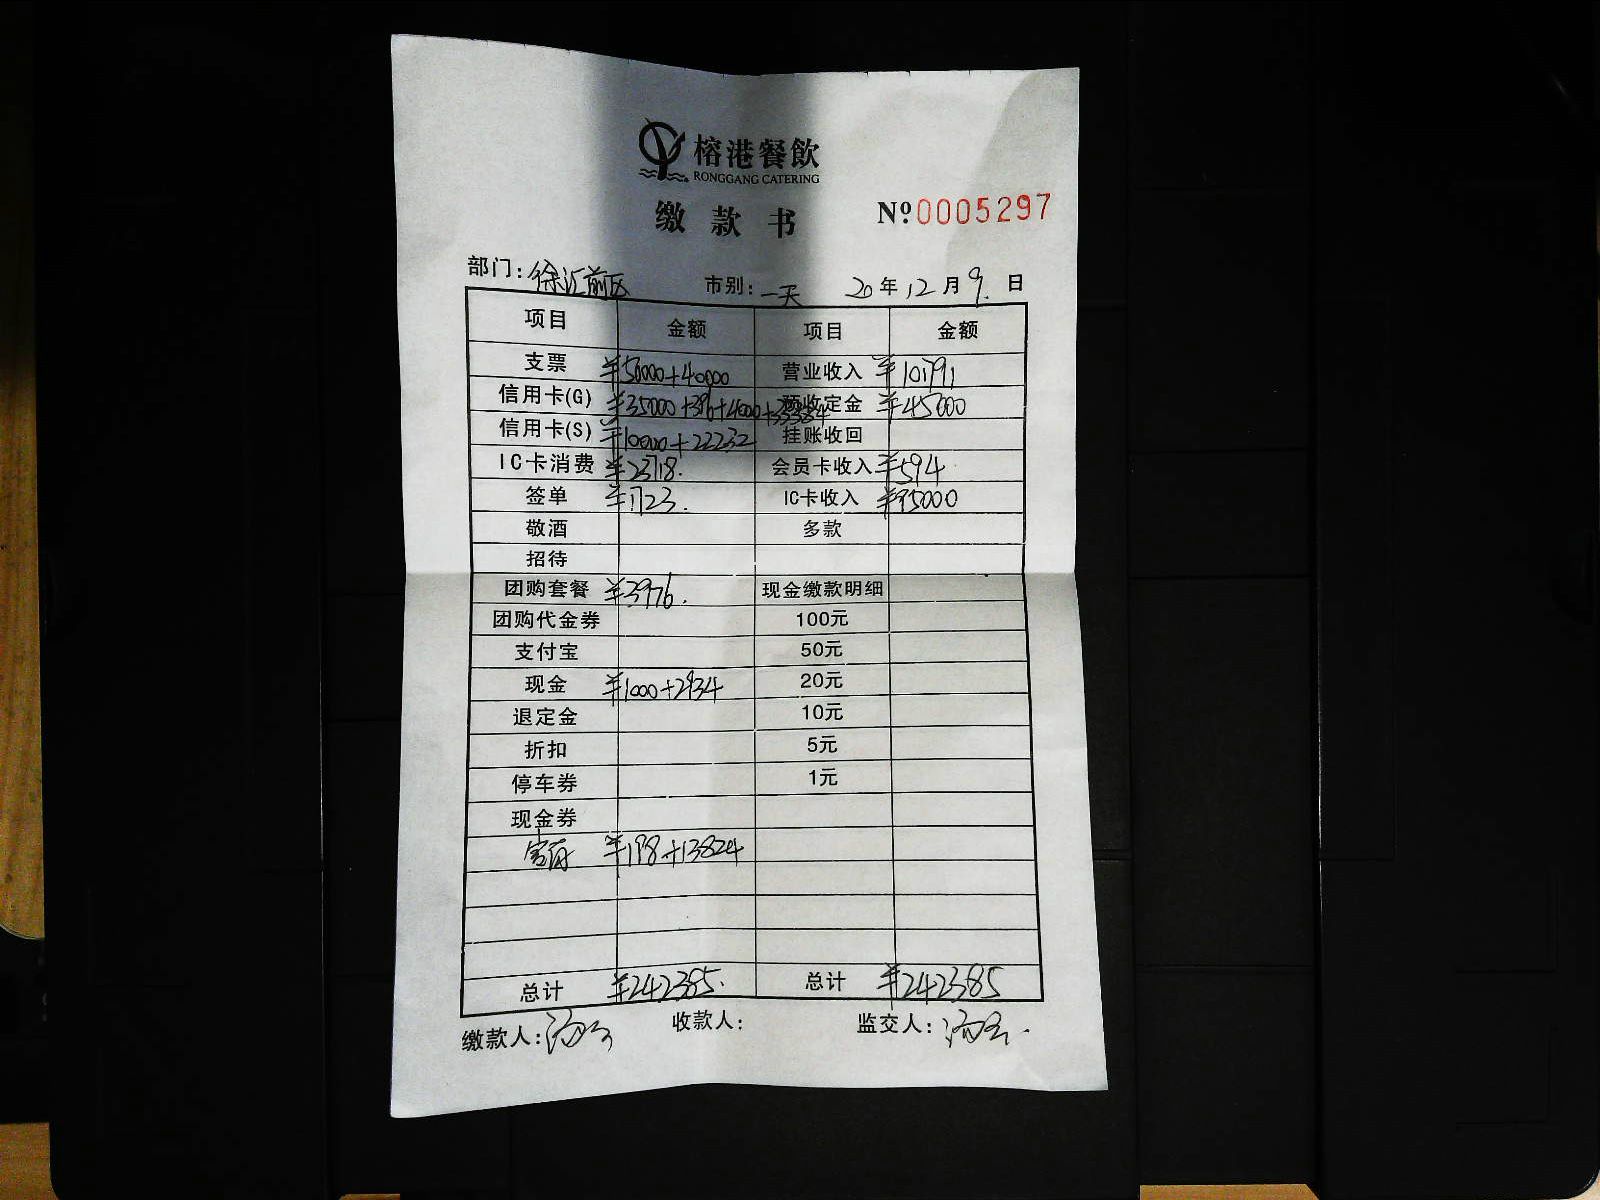 榕港餐飲
RONGGANG CATERING
缴款书 №0005297
部门：徐汇前区 市别：一天 20年12月9日
项目 金额 项目 金额
支票 ¥50000+40000 营业收入 ¥101791
信用卡(G) ¥35000+396+4000+33384 预收定金 ¥45000
信用卡(S) ¥10000+22232 挂账收回
IC卡消费 ¥23718. 会员卡收入 ¥594
签单 ¥1723. IC卡收入 ¥95000
敬酒 多款
招待
团购套餐 ¥3976. 现金缴款明细
团购代金券 100元
支付宝 50元
现金 ¥1000+2934 20元
退定金 10元
折扣 5元
停车券 1元
现金券
¥198+13824
总计 ¥242385. 总计 ¥242385
缴款人： 收款人： 监交人：